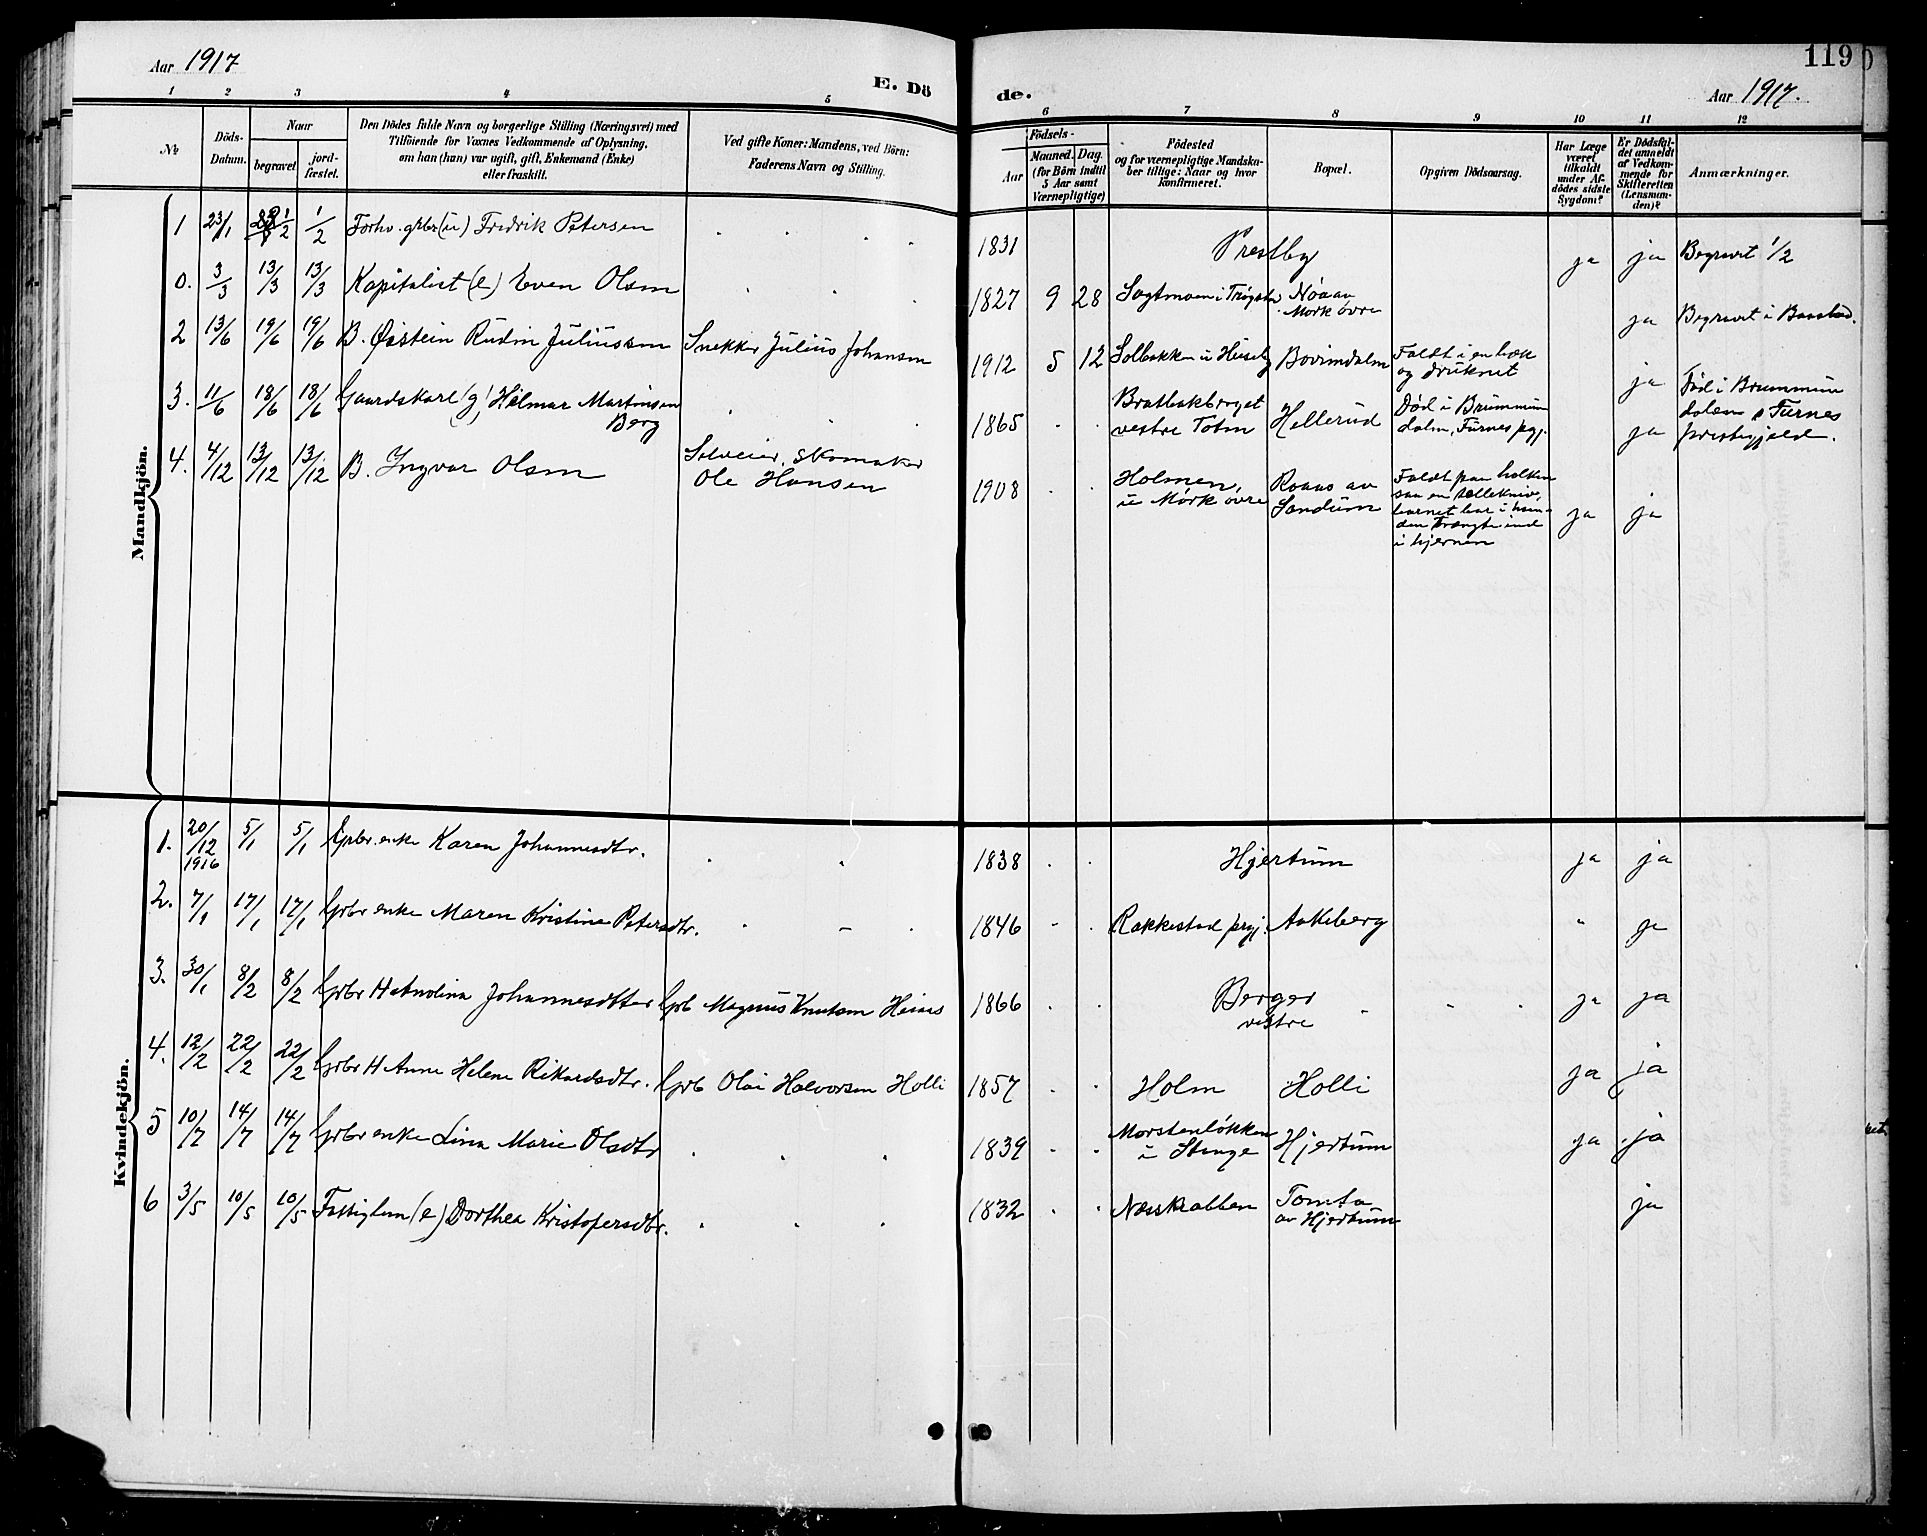 Aar 1917
E. Dö
1 2 3 4 5
№
Döds-Datum.
Naar
begravet
jordfæstet.
Den Dödes fulde Navn og borgerlige Stilling (Næringsvei) med
Tilföiende for Voxnes Vedkommende af Oplysning,
om han (hun) var ugift, gift, Enkemand (Enke)
eller fraskilt.
Ved gifte Koner: Mandens, ved Börn:
Faderens Navn og Stilling.
Mandkjön.
1 23/1 1/2 1/2 Forhv. grbr (u) Fredrik Petersen
0. 3/3 13/3 13/3 Kapitalist (e) Even Olsen
2 13/6 19/6 19/6 B. Øistein Rudin Juliussen Snekker Julius Johansen
3. 11/6 18/6 18/6 Gaardskarl (g) Hilmar Martinsen
Berg
4. 4/12 13/12 13/12 B. Ingvar Olsen Selveier, Skomaker
Ole Hansen
Kvindekjön.
1. 20/12 1916 5/1 5/1 Grbr. enke Karen Johannesdtr.
2. 7/1 17/1 17/1 Grbr enke Maren Kristine Petersdtr.
3. 30/1 8/2 8/2 Grbr H Andlina Johannesdtter Grb Magnus Knutsen
4. 12/2 22/2 22/2 Grbr H Anne Helene Rikardsdtr. Grb Olai Halvorsen Holli
5 10/7 14/7 14/7 Grbr enke Lina Marie Olsdtr
6 3/5 10/5 10/5 Fattiglem (e) Dorthea Kristofersdtr.
119
de.
Aar 1917.
6 7 8 9 10 11 12
Födsels-
Aar
Maaned. Dag.
(for Börn indtil
5 Aar samt
Værnepligtige)
Födested
og for værnepligtige Mandskaber tillige: Naar og hvor
Konfirmeret.
Bopæl.
Opgiven Dödsaarsag.
Har Læge
været
tilkaldt
under Afdödes sidste
Sygdom?
Er Dödsfaldet anmeldt
af Vedkommende for
Skifteretten
(Lensmanden)?
Anmærkninger.
1831 Prestby ja ja Begravet 1/2
1827 9 28 Sagtmoen i Trøgstad. Nøaav
Mørk øvre ja Begravet i Baastad.
1912 5 12 Solbakken u Huseby Bovimdalen Faldt i en bæk
og druknet ja
1865 Bratbakbraget
vestre Toten Hellerud Død i Brummun
dalen, Furnes pgj. ja Død i Brummun
dalen i Furnes
prestegjeld.
1908 Holmen,
u Mørk øvre Roaas av
Sandum Faldt paa holken
saa en tællekniv,
barnet bar i haan
den trængte ind
i hjernen ja ja
1838 Hjertum ja ja
1846 Rakkestad prgj. Aakeberg " ja
1866 Berger
vestre ja ja
1857 Holm Holli ja ja
1839 Morstenløkken
u Stenge Hjertum ja ja
1832 Næsskabben Tomta
av Hjertum ja